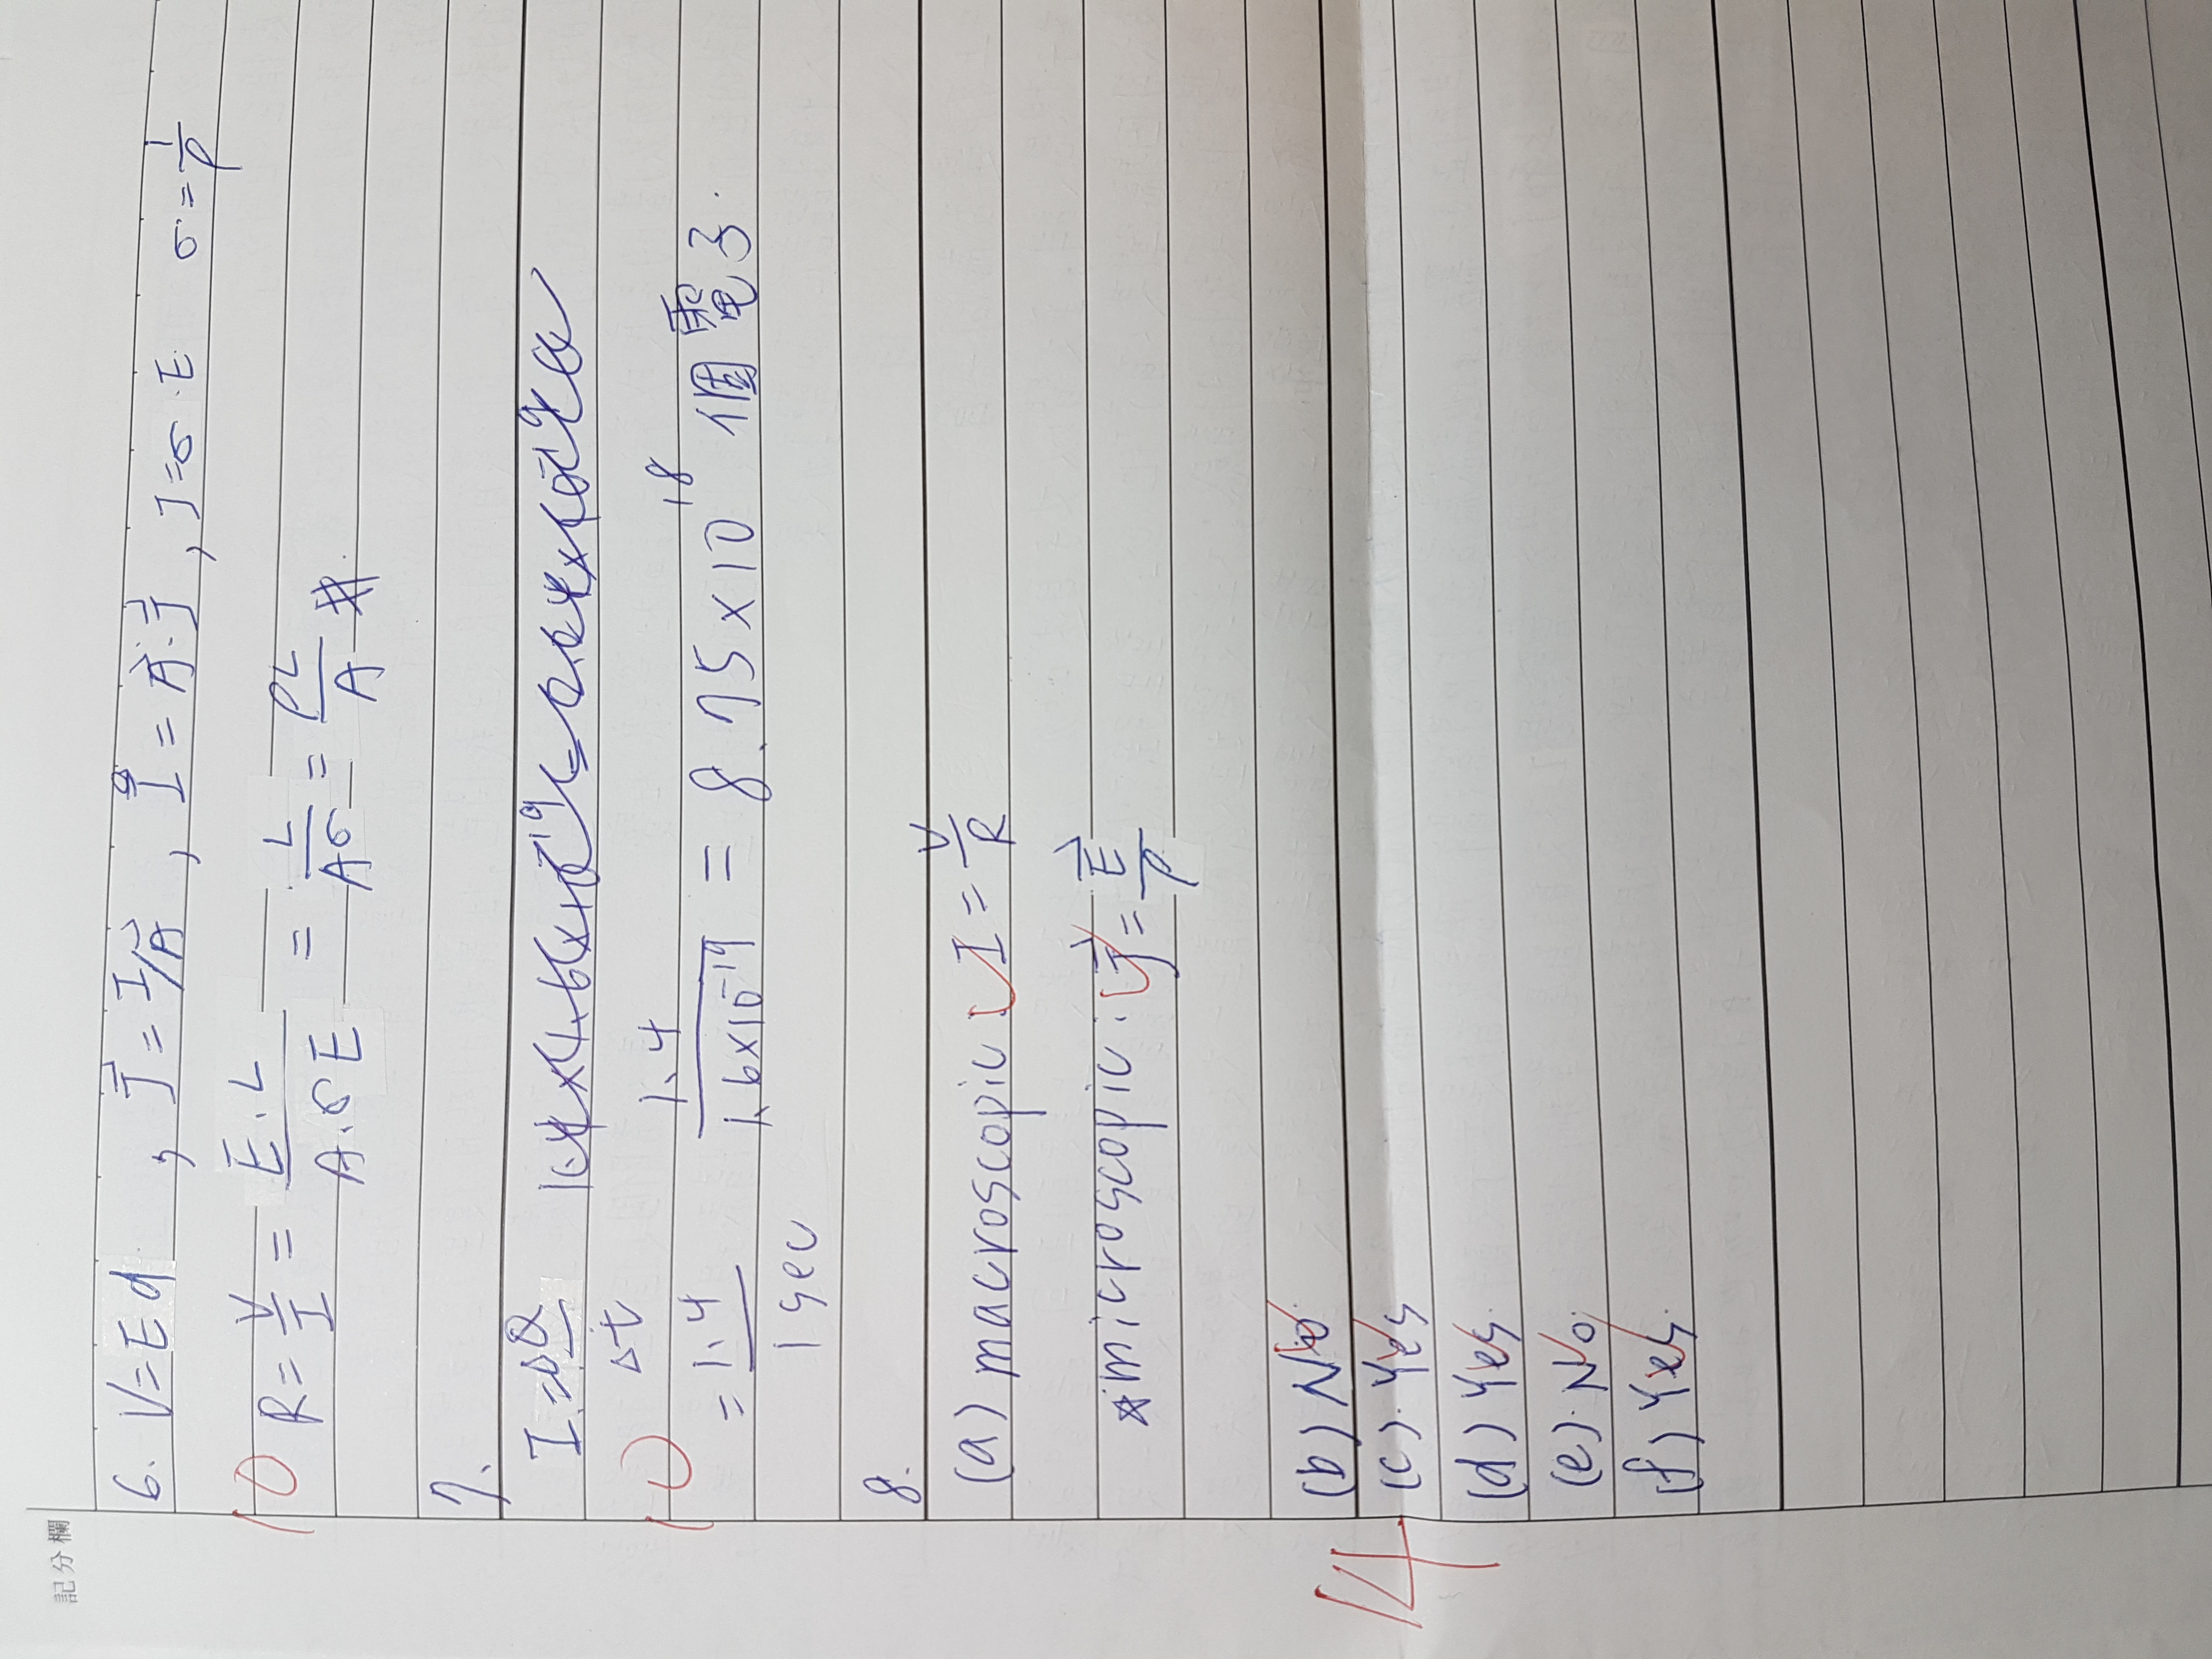 記分欄
6. V=Ed , J⃗ = I/A⃗ , I⃗ = A⃗·J⃗ , J=σ·E σ=1/ρ
10 R= V/I = E.L/A.σE = L/Aσ = ρL/A #.
7.
I=ΔQ/Δt
10 = 1.4/1 sec 1.4/1.6×10^-19 = 8.75×10^18 個電子.
8.
(a) macroscopic : I = V/R
☆microscopic : J⃗ = E⃗/ρ
(b) No.
14 (c). Yes
(d) Yes.
(e). No.
(f) Yes.